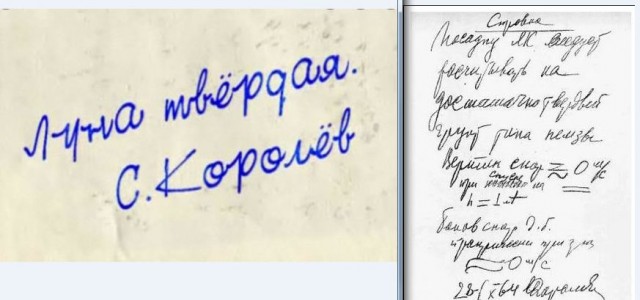 Луна твёрдая.
С. Королёв
Справка
Посадку ЛК следует
расчитывать на
достаточно твердый
грунт типа пемзы
Вертик скор ≈ 0 м/с
при на
h = 1 м
Боков скор д.б.
≈ 0 м/с
28-X 64 Королев